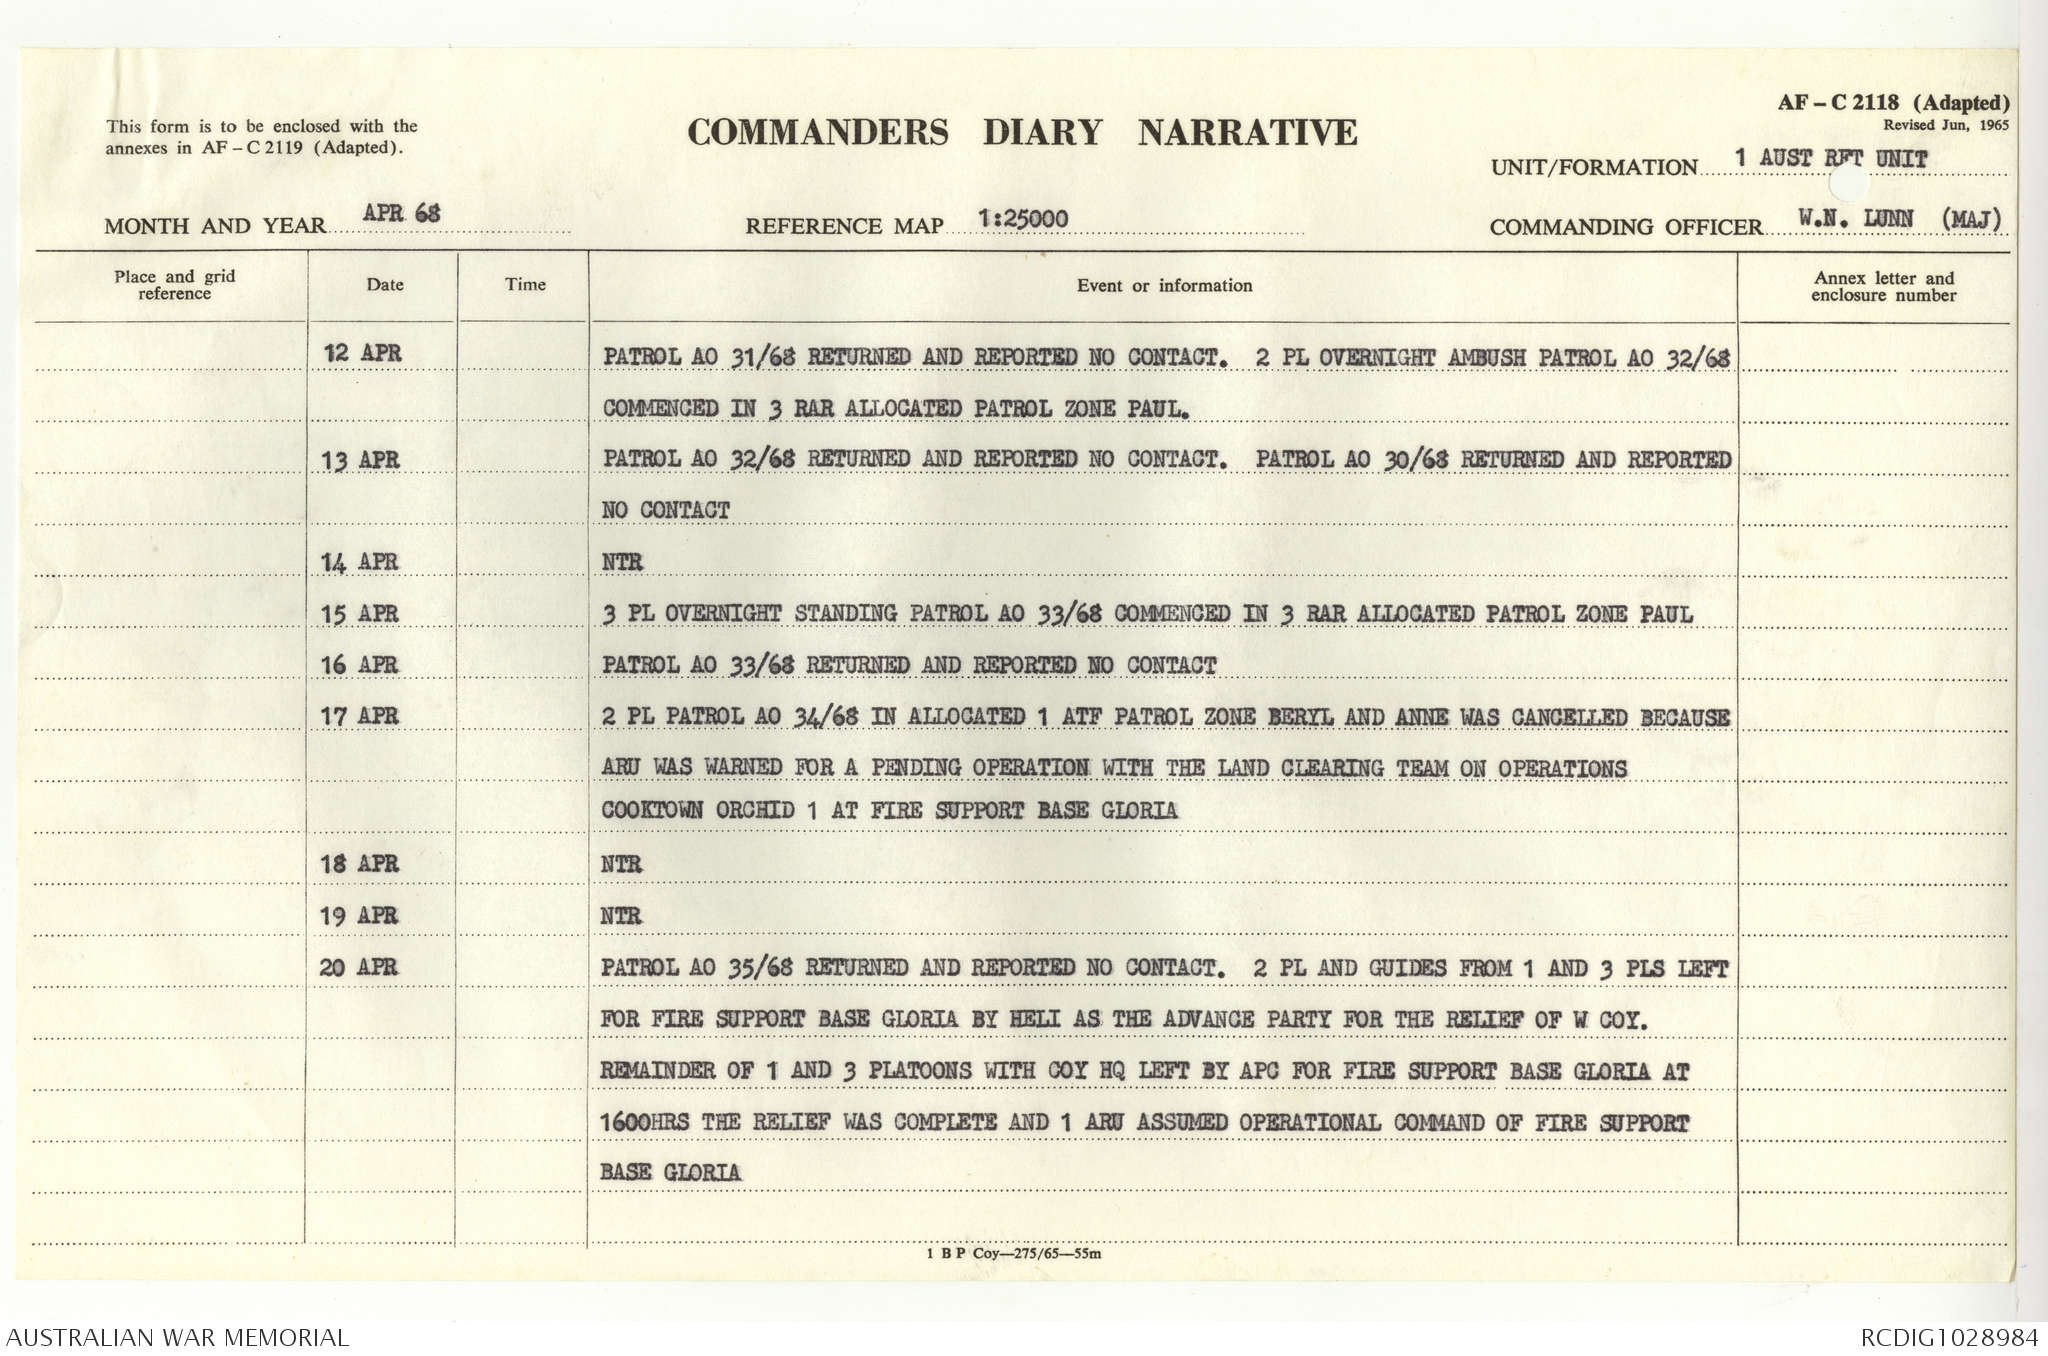 This form is to be enclosed with the
annexes in AF – C 2119 (Adapted).
COMMANDERS DIARY NARRATIVE
AF – C 2118 (Adapted)
Revised Jun, 1965
UNIT/FORMATION 1 AUST RFT UNIT
MONTH AND YEAR APR 68
REFERENCE MAP 1:25000
COMMANDING OFFICER W.N. LUNN (MAJ)
Place and grid
reference
Date
Time
Event or information
Annex letter and
enclosure number
12 APR PATROL AO 31/68 RETURNED AND REPORTED NO CONTACT. 2 PL OVERNIGHT AMBUSH PATROL AO 32/68
COMMENCED IN 3 RAR ALLOCATED PATROL ZONE PAUL.
13 APR PATROL AO 32/68 RETURNED AND REPORTED NO CONTACT. PATROL AO 30/68 RETURNED AND REPORTED
NO CONTACT
14 APR NTR
15 APR 3 PL OVERNIGHT STANDING PATROL AO 33/68 COMMENCED IN 3 RAR ALLOCATED PATROL ZONE PAUL
16 APR PATROL AO 33/68 RETURNED AND REPORTED NO CONTACT
17 APR 2 PL PATROL AO 34/68 IN ALLOCATED 1 ATF PATROL ZONE BERYL AND ANNE WAS CANCELLED BECAUSE
ARU WAS WARNED FOR A PENDING OPERATION WITH THE LAND CLEARING TEAM ON OPERATIONS
COOKTOWN ORCHID 1 AT FIRE SUPPORT BASE GLORIA
18 APR NTR
19 APR NTR
20 APR PATROL AO 35/68 RETURNED AND REPORTED NO CONTACT. 2 PL AND GUIDES FROM 1 AND 3 PLS LEFT
FOR FIRE SUPPORT BASE GLORIA BY HELI AS THE ADVANCE PARTY FOR THE RELIEF OF W COY.
REMAINDER OF 1 AND 3 PLATOONS WITH COY HQ LEFT BY APC FOR FIRE SUPPORT BASE GLORIA AT
1600HRS THE RELIEF WAS COMPLETE AND 1 ARU ASSUMED OPERATIONAL COMMAND OF FIRE SUPPORT
BASE GLORIA
1 B P Coy—275/65—55m
AUSTRALIAN WAR MEMORIAL
RCDIG1028984